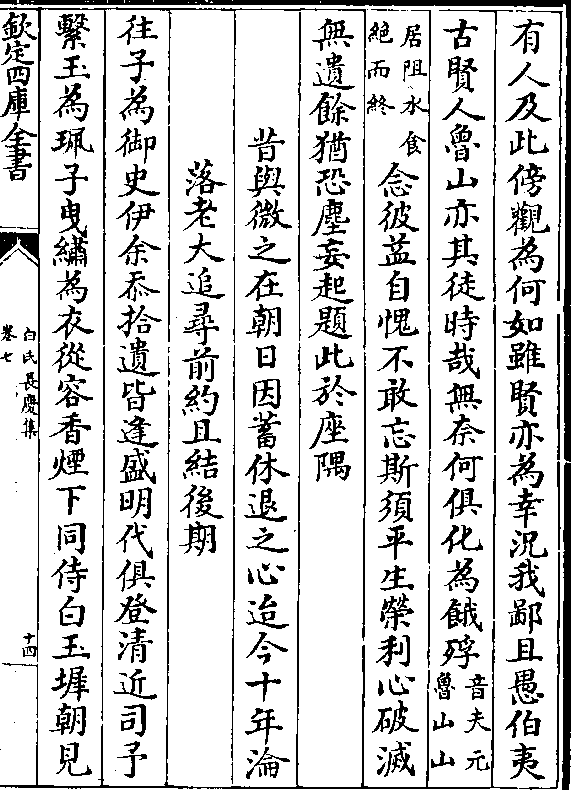 有人及此傍觀為何如雖賢亦為幸況我鄙且愚伯夷
古賢人魯山亦其徒時哉無奈何俱化為餓殍音夫元
魯山山
居阻水食
絶而終
念彼益自愧不敢忘斯須平生榮利心破滅
無遺餘猶恐塵妄起題此於座隅
昔與微之在朝日因蓄休退之心迨今十年淪
落老大追尋前約且結後期
往子為御史伊余忝拾遺皆逢盛明代俱登清近司予
繫玉為珮子曳繡為衣從容香煙下同侍白玉墀朝見
欽定四庫全書
白氏長慶集
卷七
十四